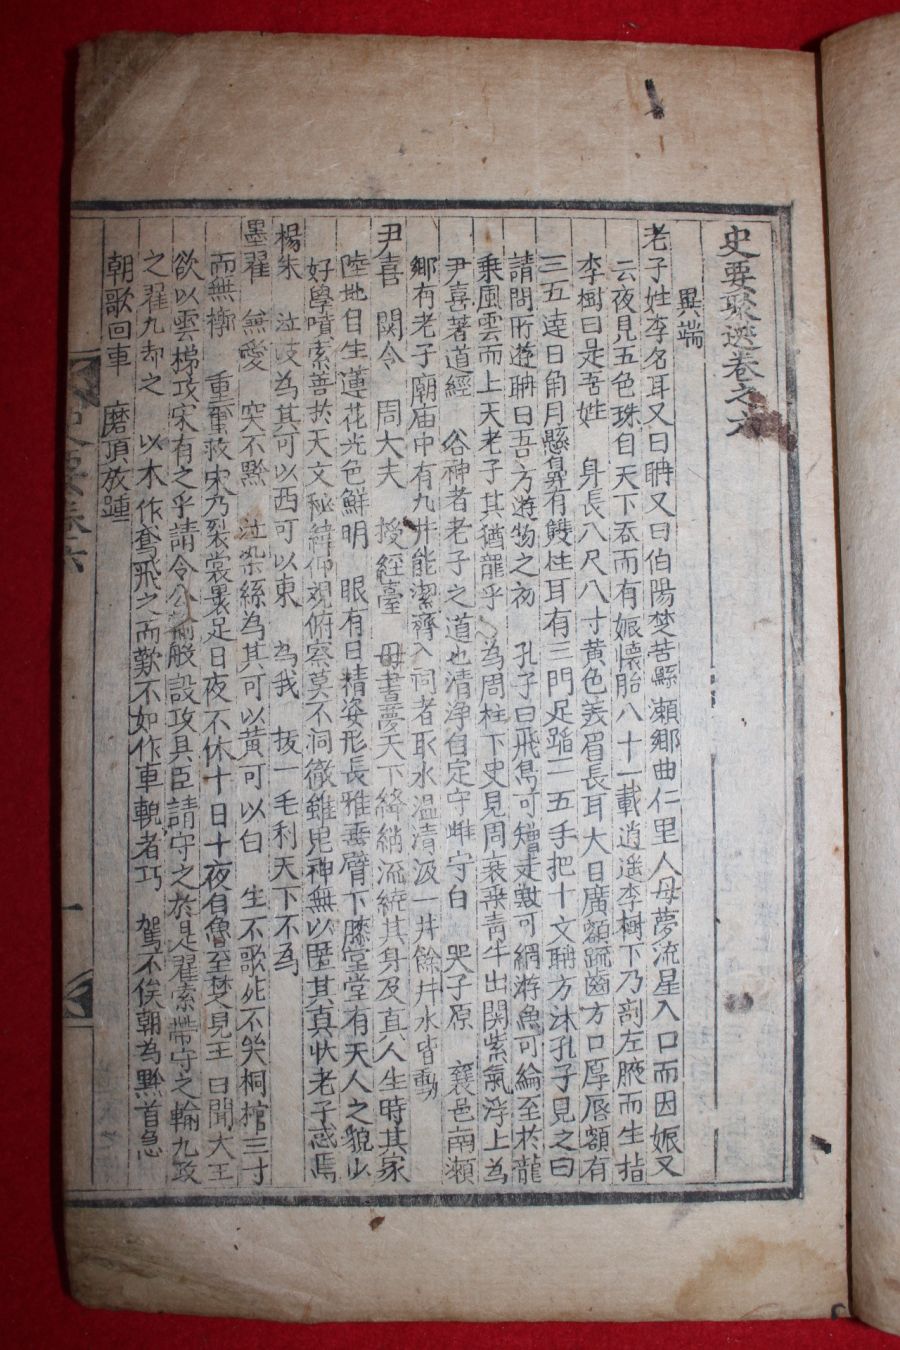 史要聚選卷之六
異端
老子姓李名耳又曰聃又曰伯陽楚苦縣瀨鄉曲仁里人母夢流星入口而因娠又
云夜見五色珠自天下吞而有娠懷胎八十一載逍遙李樹下乃剖左腋而生指
李樹曰是吾姓 身長八尺八寸黃色美眉長耳大目廣額疏齒方口厚唇額有
三五達日角月懸鼻有雙柱耳有三門足蹈二五手把十文聃方沐孔子見之曰
請問所遊聃曰吾方遊物之初 孔子曰飛鳥可矰走獸可網游魚可綸至於龍
乘風雲而上天老子其猶龍乎 爲周柱下史見周衰乘靑牛出關紫氣浮上爲
尹喜著道經 谷神者老子之道也清淨自定守雌守白 哭子原 襄邑南瀨
鄉有老子廟庙中有九井能潔齊入祠者取水溫清汲一井餘井水皆動
尹喜 關令 周大夫 授經臺 母晝夢天下絳綃流繞其身及直人生時其家
陸地自生蓮花光色鮮明 眼有日精姿形長雅垂臂下膝堂堂有天人之貌以
好學墳素善於天文秘緯仰觀俯察莫不洞徹雖鬼神無以匿其真狀老子惑焉
楊朱 泣歧爲其可以西可以東 爲我 拔一毛利天下不爲
墨翟 兼愛 突不黔 泣染絲爲其可以黃可以白 生不歌死不哭桐棺三寸
而無槨 重繭救宋乃裂裳裹足日夜不休十日十夜自魯至楚見王曰聞大王
欲以雲梯攻宋有之乎請令公輸般設攻具臣請守之於是翟縈帶守之輸九攻
之翟九却之 以木作鳶飛之而歎不如作車輗者巧 駕不俟朝爲黔首急
朝歌回車 磨頂放踵
史要卷六
一